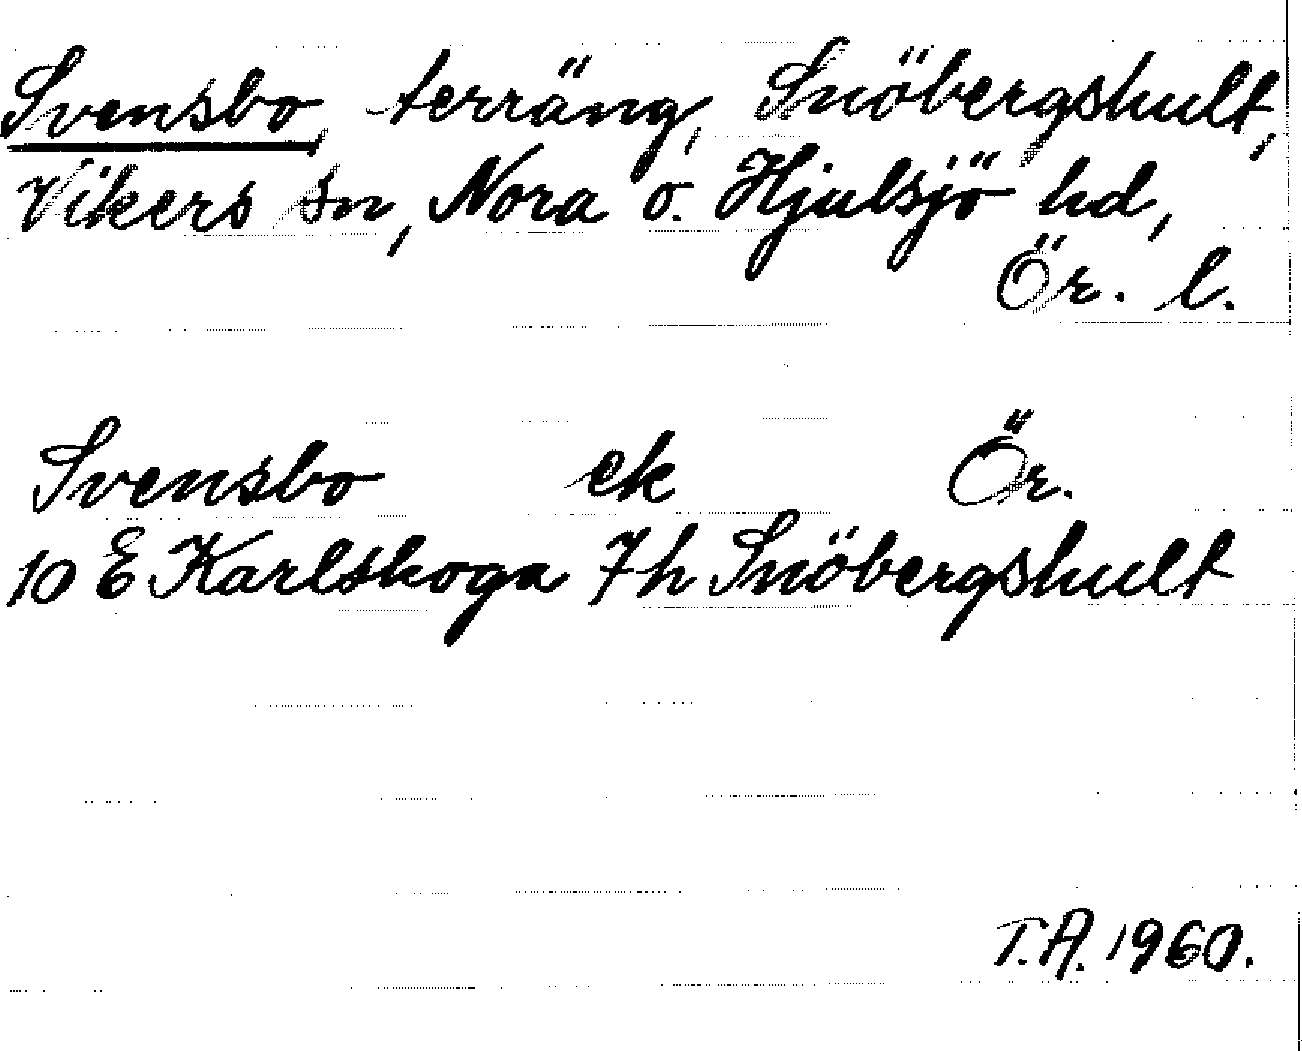 Svensbo, terräng, Snöbergshult,
Vikers sn, Nora o. Hjulsjö hd,
Ör. l.
Svensbo ek Ör.
10 E Karlskoga 7h Snöbergshult
T.A. 1960.